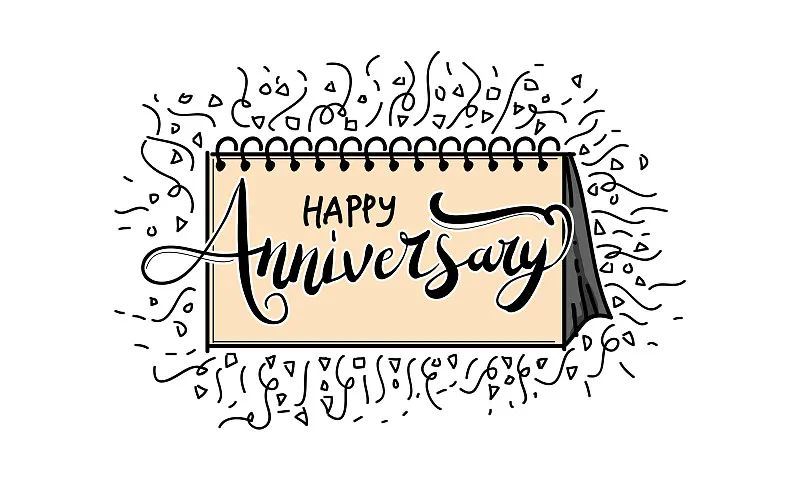 HAPPY
Anniversary